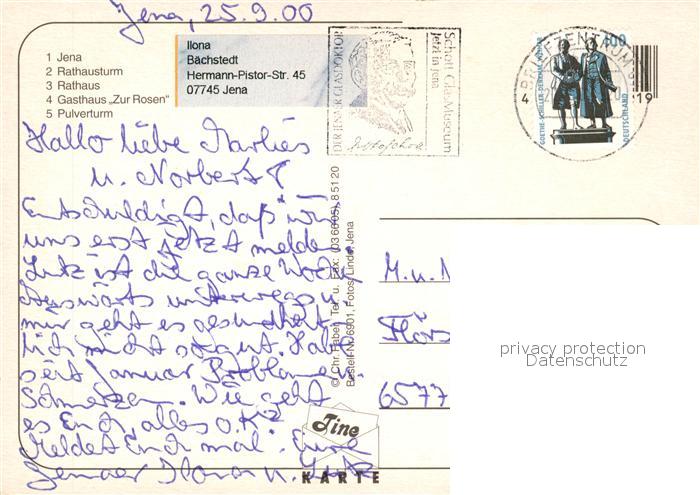 Jena, 25.9.00
1 Jena
2 Rathausturm
3 Rathaus
4 Gasthaus „Zur Rosen"
5 Pulverturm
Ilona
Bächstedt
Hermann-Pistor-Str. 45
07745 Jena
DER JENAER GLASDOKTOR
Schott GlasMuseum
Jetzt in Jena
BRIEFZENTRUM
4
19
100
GOETHE-SCHILLER-DENKMAL
DEUTSCHLAND
Hallo liebe Marlies
u. Norbert!
Entschuldigt, daß wir
uns erst jetzt melden
Lutz ist die ganze Woche
auswärts unterwegs u.
mir geht es gesundheit-
lich nicht so gut. Habe
seit Januar Probleme u.
Schmerzen. Wie geht
es Euch, alles o.K?
Meldet Euch mal. Eure
Jenaer Ilona u. Lutz
© Chr. Raben Tel. u. Fax: (03 66 05) 8 51 20
Bestell-Nr. 6901, Fotos: Linde, Jena
Tine
KARTE
M. u. N
Flörs
6577
privacy protection
Datenschutz